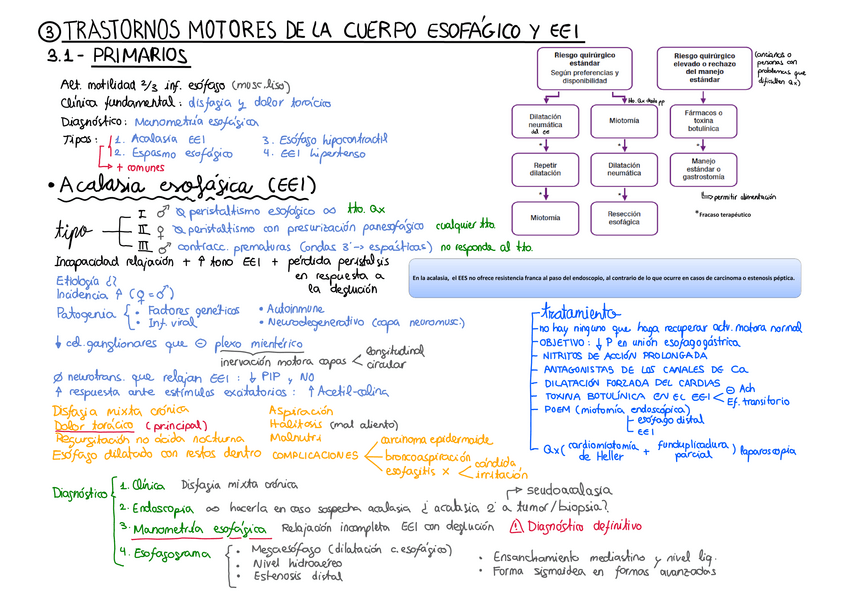 ③ TRASTORNOS MOTORES DE LA CUERPO ESOFÁGICO Y EEI
3.1- PRIMARIOS
Alt. motilidad 2/3 inf. esófago (musc. liso)
Clínica fundamental: disfagia y dolor torácico
Diagnóstico: Manometría esofágica
Tipos: 1. Acalasia EEI 3. Esófago hipocontractil
2. Espasmo esofágico 4. EEI hipertenso
+ comunes
Riesgo quirúrgico estándar
Según preferencias y disponibilidad
Riesgo quirúrgico elevado o rechazo del manejo estándar
(ancianos o personas con problemas que dificulten Qx)
Dilatación neumática
del EEI
tto. Qx
Miotomía
Fármacos o toxina botulínica
*
*
*
Repetir dilatación
Dilatación neumática
Manejo estándar o gastrostomía
permitir alimentación
*
*
Miotomía
Resección esofágica
*Fracaso terapéutico
• Acalasia esofágica (EEI)
tipo
I ♂ ∅ peristaltismo esofágico ∞ tto. Qx
II ♀ ∅ peristaltismo con presurización panesofágico cualquier tto.
III ♂ contracc. prematuras (ondas 3ª -> espásticas) no responde al tto.
Incapacidad relajación + ↑ tono EEI + pérdida peristalsis en respuesta a la deglución
En la acalasia, el EES no ofrece resistencia franca al paso del endoscopio, al contrario de lo que ocurre en casos de carcinoma o estenosis péptica.
Etiología ¿?
Incidencia ↑ (♀ = ♂)
Patogenia { • Factores genéticos • Autoinmune
• Inf. viral • Neurodegenerativo (capa neuromusc.)
↓ cel. ganglionares que ⊖ plexo mientérico
inervación motora capas < longitudinal
circular
∅ neurotrans. que relajan EEI: ↓ PIP y NO
↑ respuesta ante estímulos excitatorios: ↑ Acetil-colina
Disfagia mixta crónica
Dolor torácico (principal)
Regurgitación no ácida nocturna
Esófago dilatado con restos dentro
Aspiración
Halitosis (mal aliento)
Malnutri
COMPLICACIONES
carcinoma epidermoide
broncoaspiración
esofagitis x < cándida
irritación
tratamiento
- no hay ninguno que haga recuperar actv. motora normal
- OBJETIVO: ↓ P en unión esofagogástrica
- NITRITOS DE ACCIÓN PROLONGADA
- ANTAGONISTAS DE LOS CANALES DE Ca
- DILATACIÓN FORZADA DEL CARDIAS
- TOXINA BOTULÍNICA EN EL EEI < ⊖ Ach
Ef. transitorio
- POEM (miotomía endoscópica)
esófago distal
EEI
- Qx ( cardiomiotomía de Heller + funduplicadura parcial ) laparoscopia
Diagnóstico
1. Clínica Disfagia mixta crónica
seudoacalasia
2. Endoscopia ∞ hacerla en caso sospecha acalasia ¿ acalasia 2ª a tumor/biopsia?
3. Manometría esofágica Relajación incompleta EEI con deglución ⚠ Diagnóstico definitivo
4. Esofagograma { • Megaesófago (dilatación c. esofágico)
• Nivel hidroaéreo
• Estenosis distal
• Ensanchamiento mediastino y nivel líq.
• Forma sigmoidea en formas avanzadas